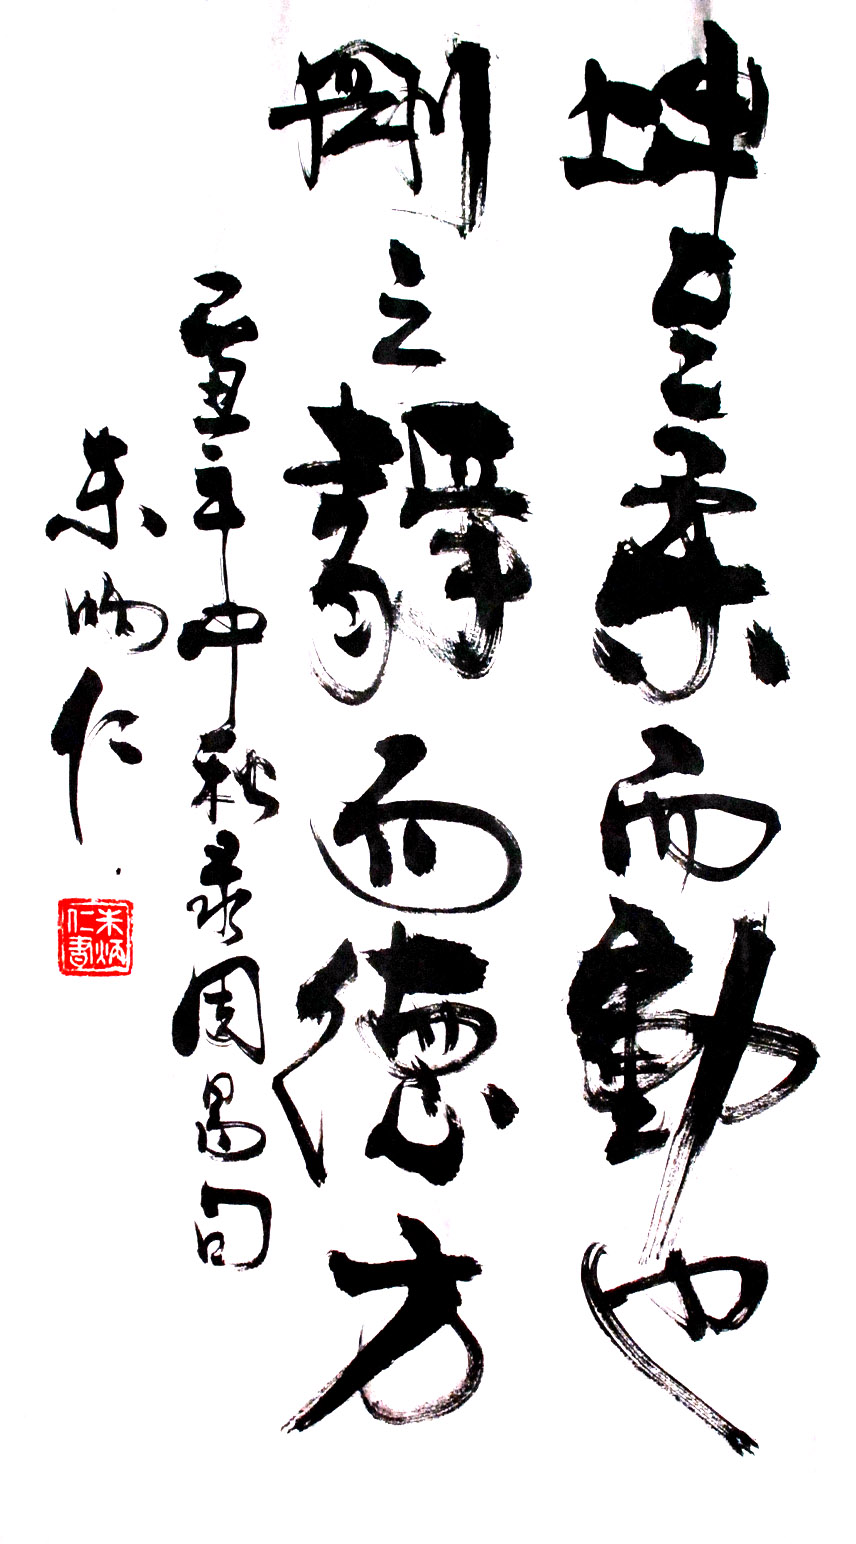 坤至柔而動也
剛至靜而德方
己丑年中秋录周易句
朱炳仁
朱炳仁書